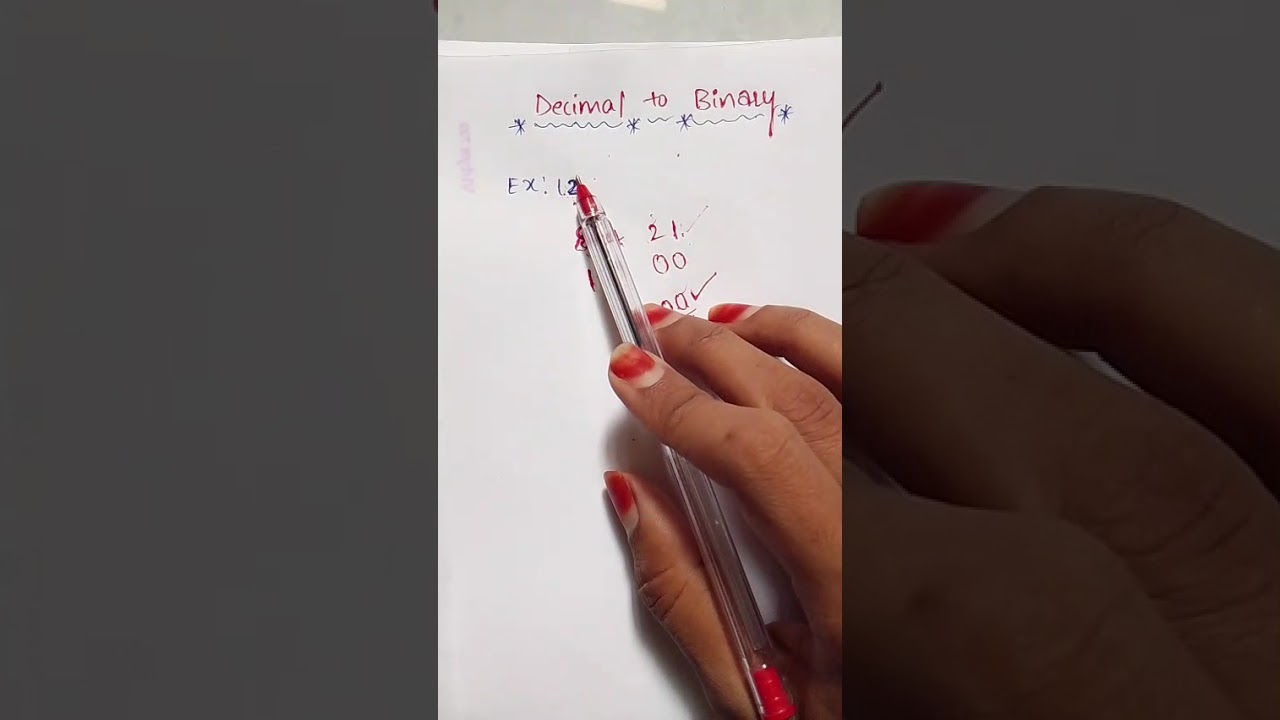 Decimal to Binary
Ex: 12
8 4 2 1
1 00
00